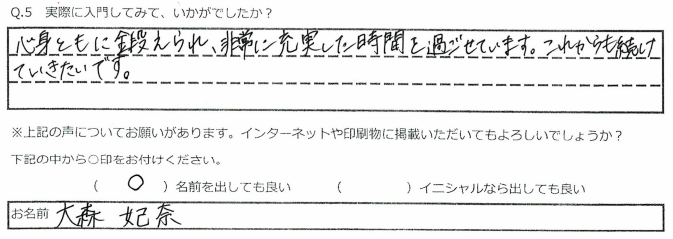 Q.5 実際に入門してみて、いかがでしたか？
心身ともに鍛えられ、非常に充実した時間を過ごせています。これからも続け
ていきたいです。
※上記の声についてお願いがあります。インターネットや印刷物に掲載いただいてもよろしいでしょうか？
下記の中から○印をお付けください。
（ ○ ）名前を出しても良い （ ）イニシャルなら出しても良い
お名前 大森 妃奈